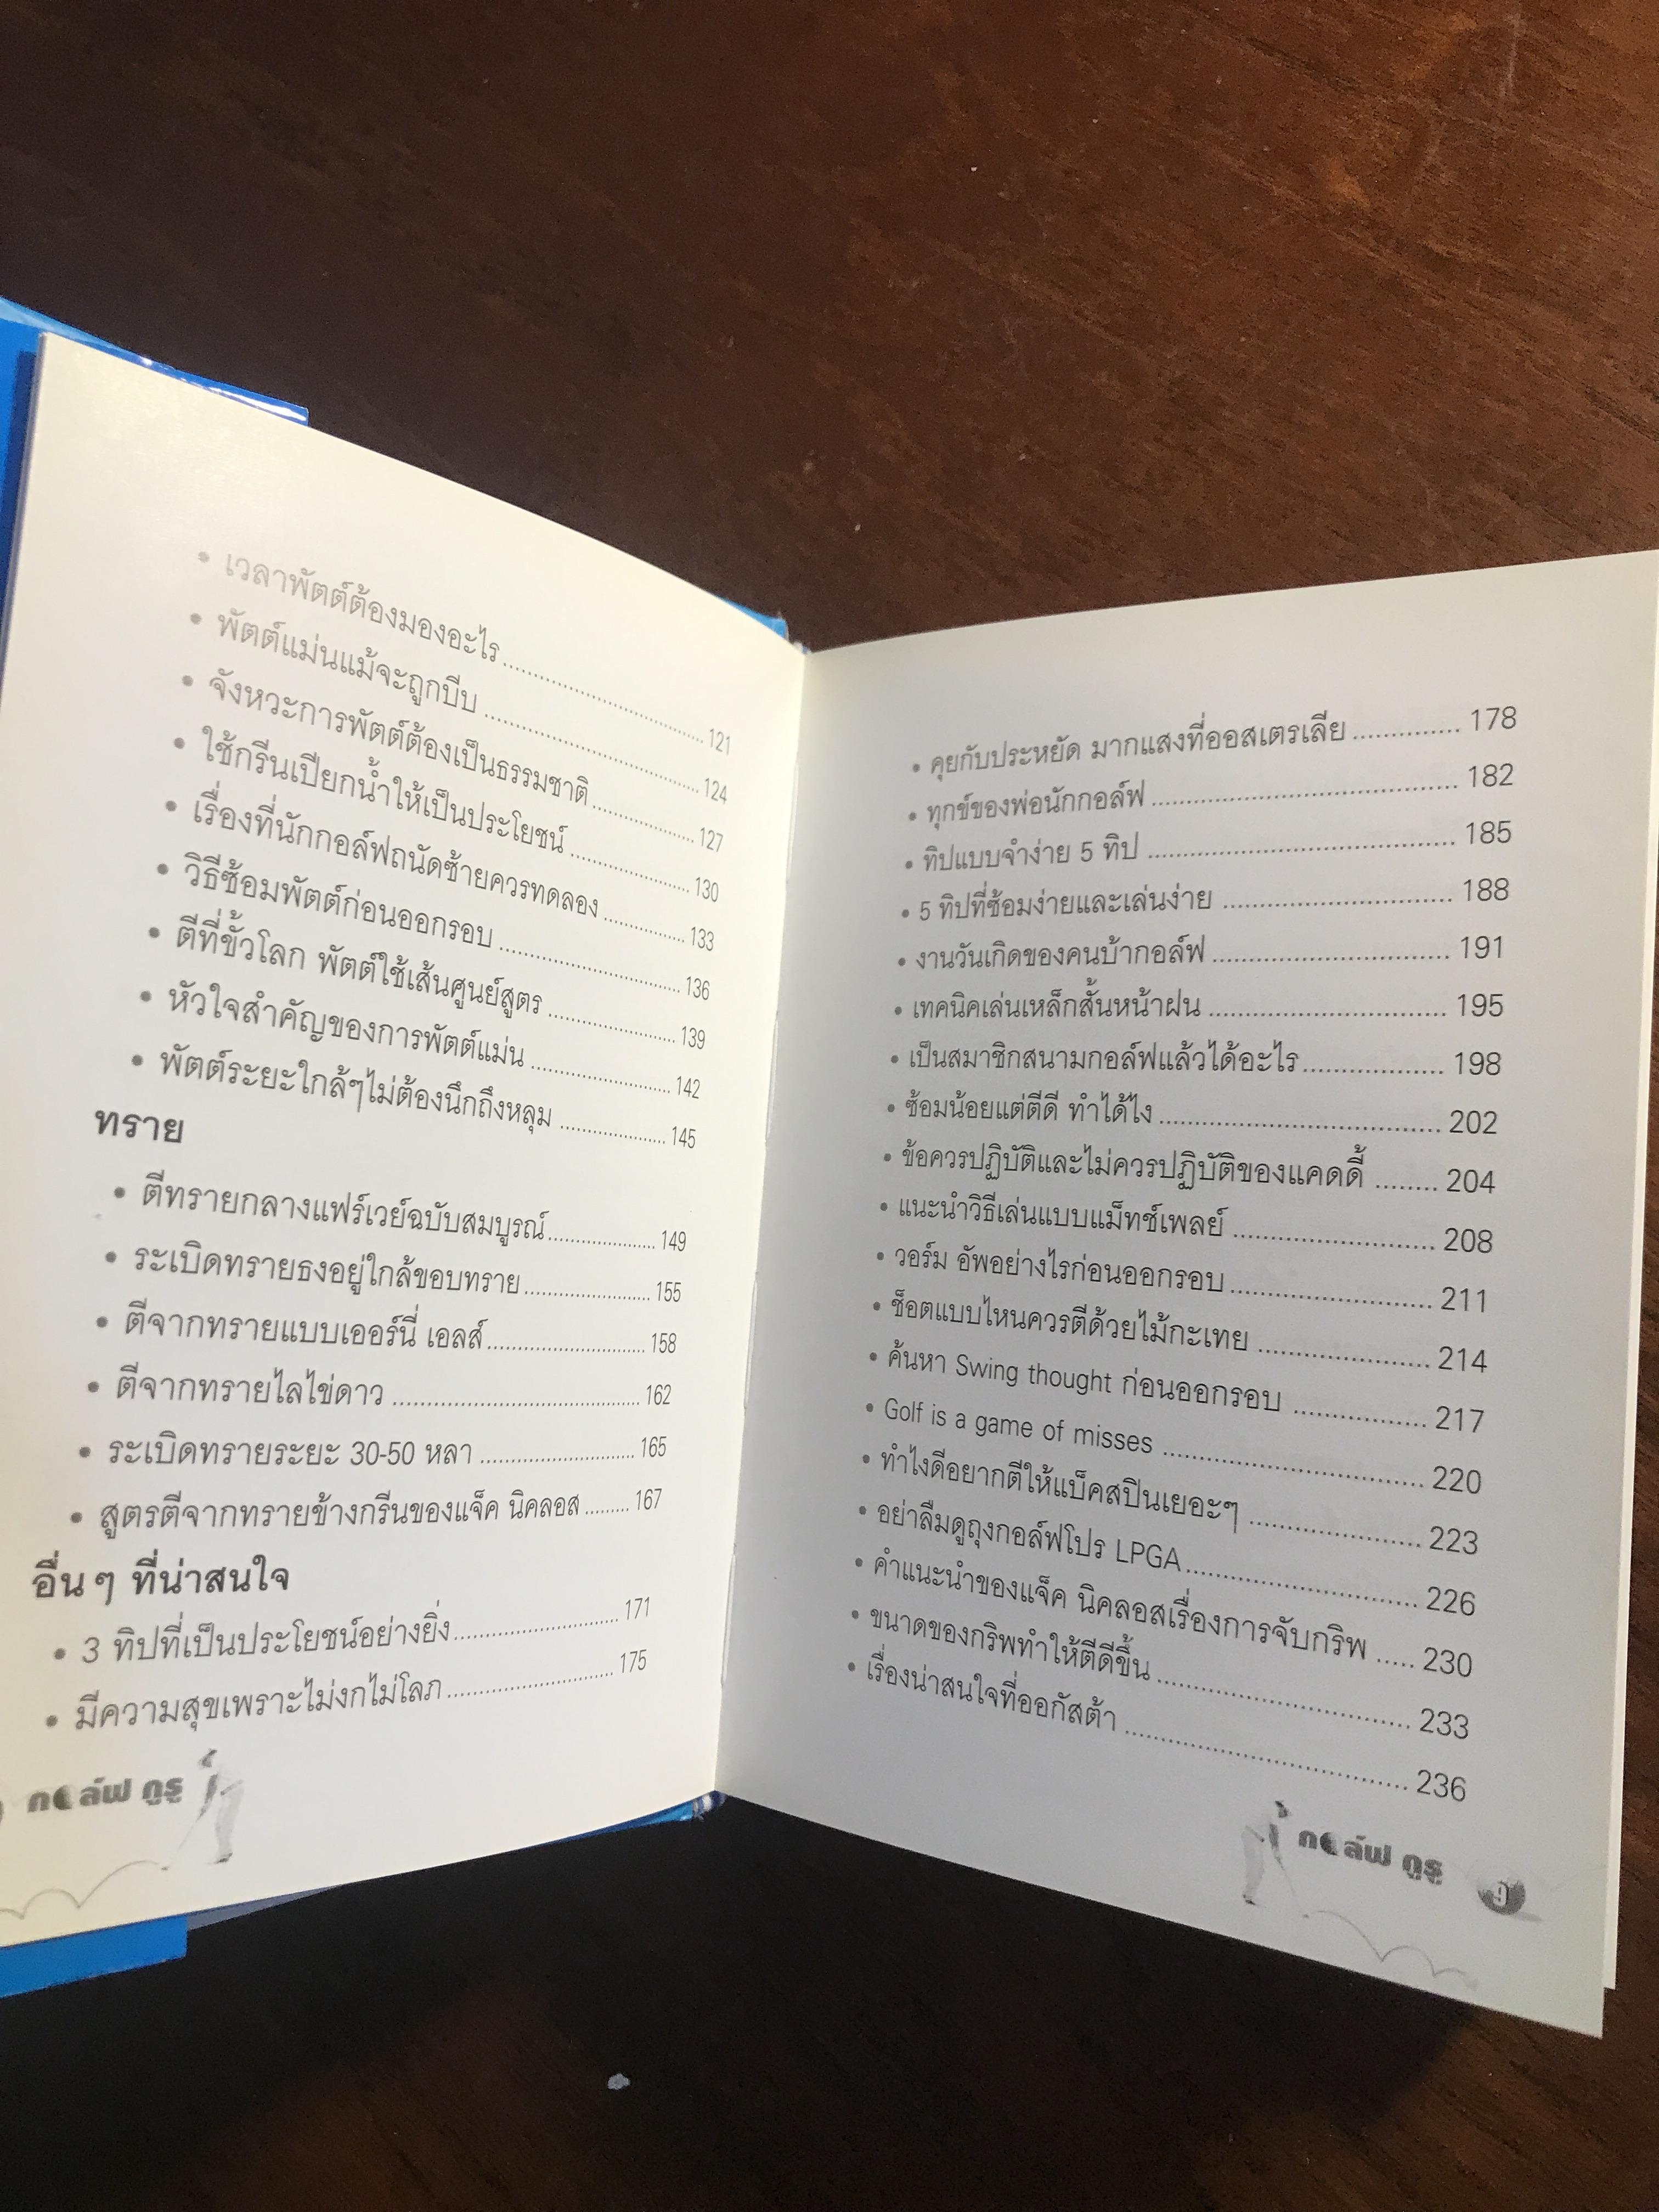 • เวลาพัตต์ต้องมองอะไร .......... 121
• พัตต์แม่นแม้จะถูกบีบ .......... 124
• จังหวะการพัตต์ต้องเป็นธรรมชาติ .......... 127
• ใช้กรีนเปียกน้ำให้เป็นประโยชน์ .......... 130
• เรื่องที่นักกอล์ฟถนัดซ้ายควรทดลอง .......... 133
• วิธีซ้อมพัตต์ก่อนออกรอบ .......... 136
• ตีที่ขั้วโลก พัตต์ใช้เส้นศูนย์สูตร .......... 139
• หัวใจสำคัญของการพัตต์แม่น .......... 142
• พัตต์ระยะใกล้ๆไม่ต้องนึกถึงหลุม .......... 145
ทราย
• ตีทรายกลางแฟร์เวย์ฉบับสมบูรณ์ .......... 149
• ระเบิดทรายธงอยู่ใกล้ขอบทราย .......... 155
• ตีจากทรายแบบเออร์นี่ เอลส์ .......... 158
• ตีจากทรายไลไข่ดาว .......... 162
• ระเบิดทรายระยะ 30-50 หลา .......... 165
• สูตรตีจากทรายข้างกรีนของแจ็ค นิคลอส .......... 167
อื่นๆ ที่น่าสนใจ
• 3 ทิปที่เป็นประโยชน์อย่างยิ่ง .......... 171
• มีความสุขเพราะไม่งกไม่โลภ .......... 175
กอล์ฟ กูรู
• คุยกับประหยัด มากแสงที่ออสเตรเลีย .......... 178
• ทุกข์ของพ่อนักกอล์ฟ .......... 182
• ทิปแบบจำง่าย 5 ทิป .......... 185
• 5 ทิปที่ซ้อมง่ายและเล่นง่าย .......... 188
• งานวันเกิดของคนบ้ากอล์ฟ .......... 191
• เทคนิคเล่นเหล็กสั้นหน้าฝน .......... 195
• เป็นสมาชิกสนามกอล์ฟแล้วได้อะไร .......... 198
• ซ้อมน้อยแต่ตีดี ทำได้ไง .......... 202
• ข้อควรปฏิบัติและไม่ควรปฏิบัติของแคดดี้ .......... 204
• แนะนำวิธีเล่นแบบแม็ทช์เพลย์ .......... 208
• วอร์ม อัพอย่างไรก่อนออกรอบ .......... 211
• ช็อตแบบไหนควรตีด้วยไม้กะเทย .......... 214
• ค้นหา Swing thought ก่อนออกรอบ .......... 217
• Golf is a game of misses .......... 220
• ทำไงดีอยากตีให้แบ็คสปินเยอะๆ .......... 223
• อย่าลืมดูถุงกอล์ฟโปร LPGA .......... 226
• คำแนะนำของแจ็ค นิคลอสเรื่องการจับกริพ .......... 230
• ขนาดของกริพทำให้ตีดีขึ้น .......... 233
• เรื่องน่าสนใจที่ออกัสต้า .......... 236
กอล์ฟ กูรู 9